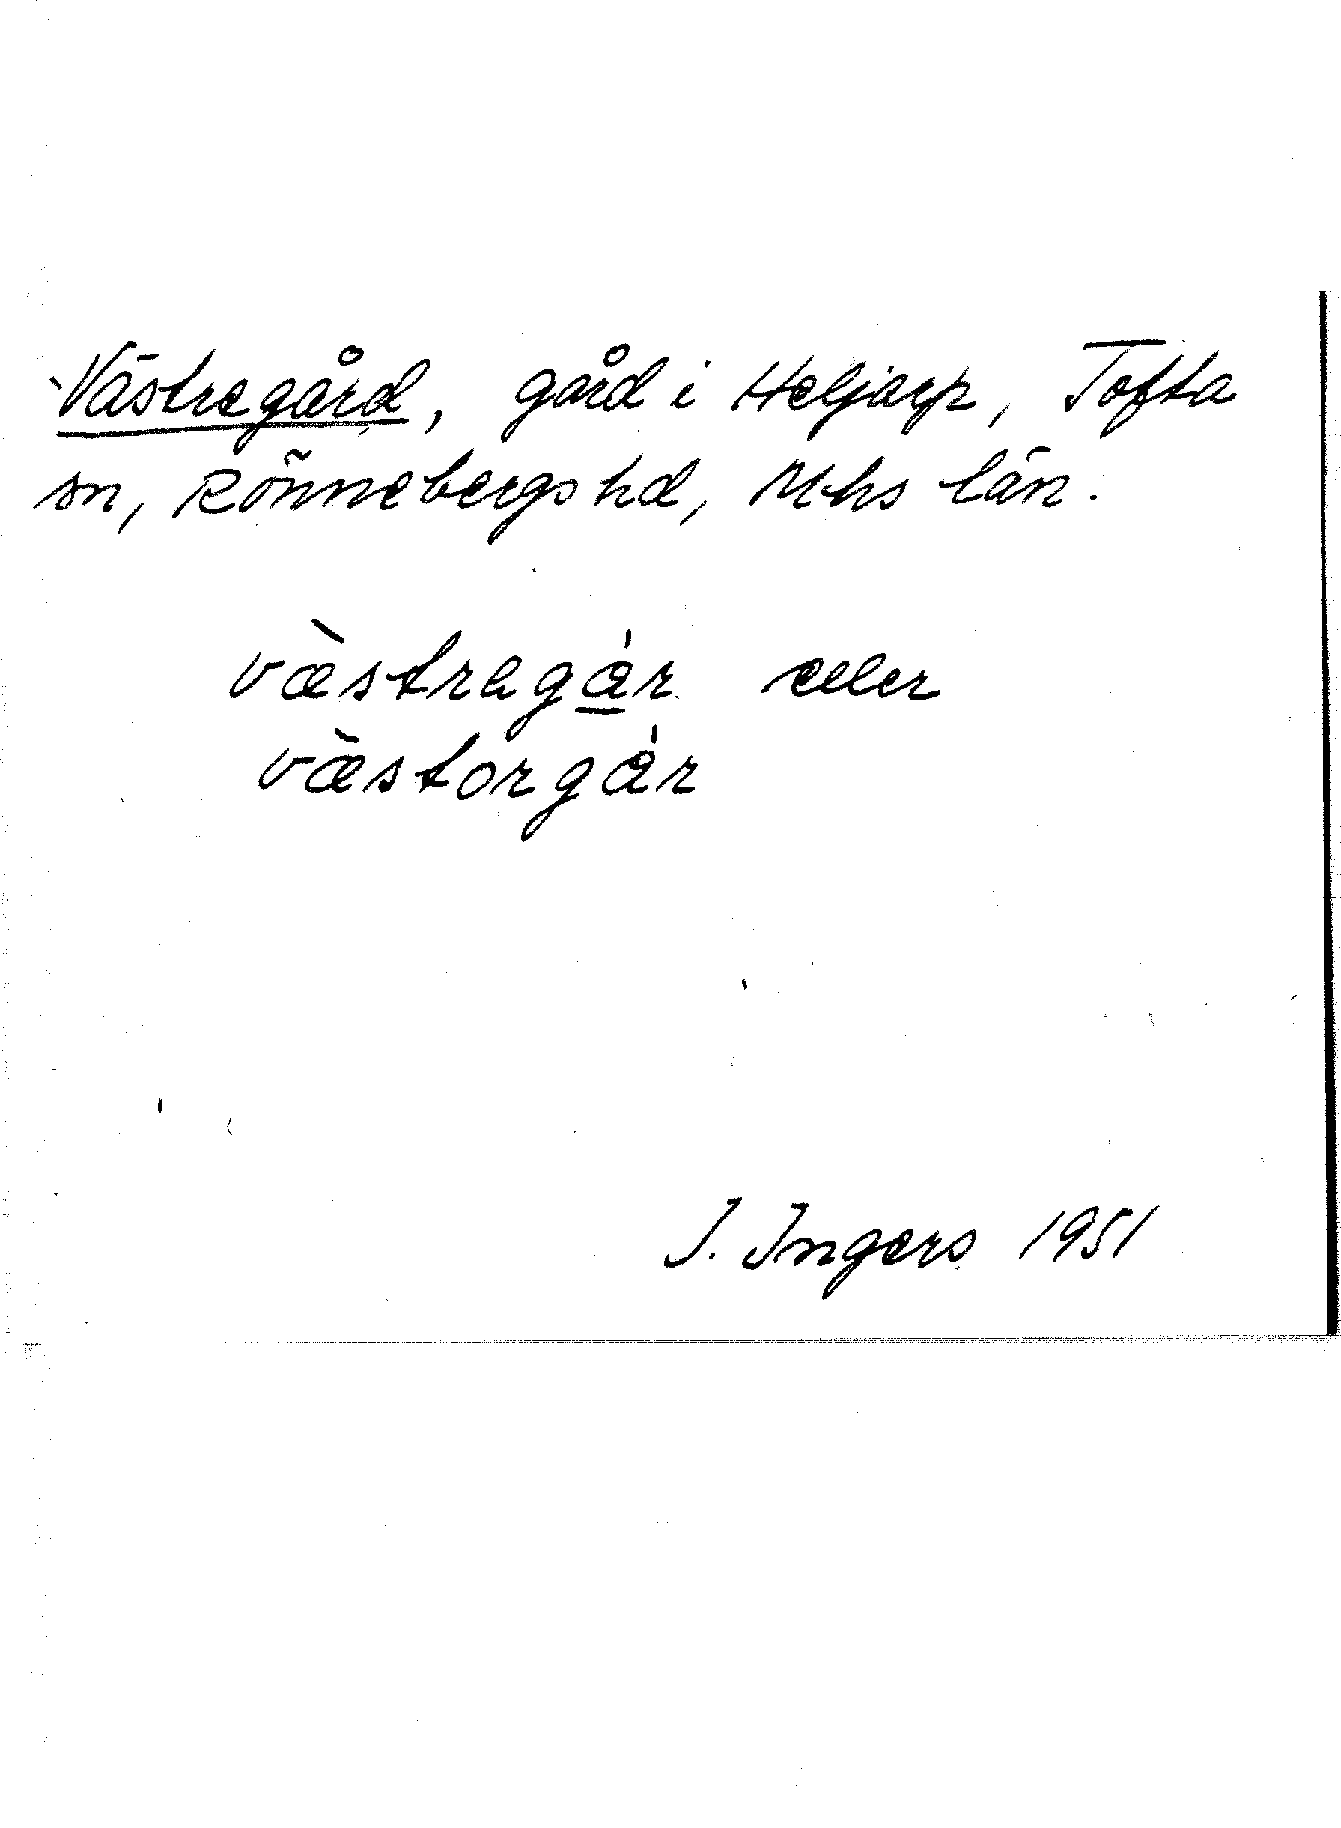 Västregård, gård i Heljarp, Tofta
sn, Rönnebergs hd, Mhs län.
væ̀stragår eller
væ̀storgår
I. Ingers 1951